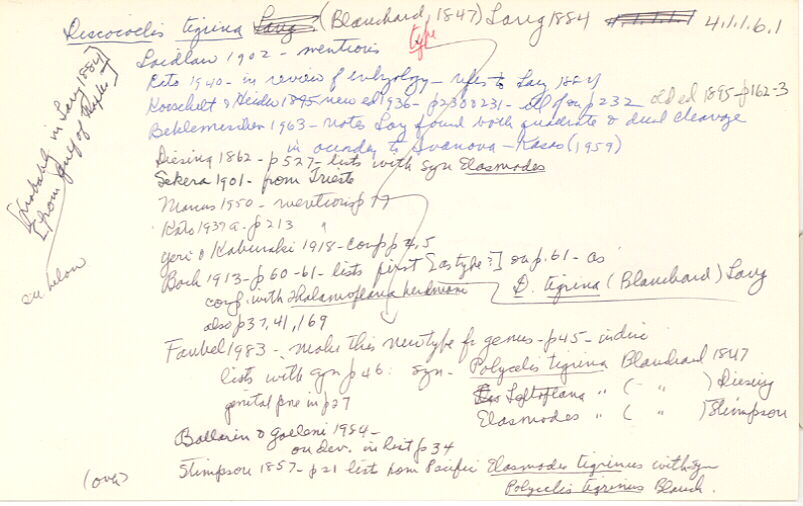 Discocelis tigrina (Blanchard, 1847) Lang 1884 4.1.1.6.1
type
[probably in Lang 1884]
[from gulf of Naples]
see below
Laidlaw 1902 - mentions
Kato 1940 - in review of embryology - refers to Lang 1884
Korschelt & Heider 1895 new ed 1936 - p230 & 231 - on p 232 old ed 1895 - p162-3
Beklemischev 1963 - notes Lang found both quadrate & dual cleavage
in according to Ivanova-Kasas (1959)
Diesing 1862 - p527 - lists with syn Elasmodes
Sekera 1901 - from Trieste
Marcus 1950 - mentions p
Kato 1937a - p 213
Yeri & Kaburaki 1918 - comp p 4, 5
Bock 1913 - p 60-61 - lists first [as type?] on p. 61 - as
D. tigrina (Blanchard) Lang
conf. with Thalamoplana herdmani
also p 37, 41, 169
Faubel 1983 - make this new type for genus - p45 - indic
lists with syn p 46: syn - Polycelis tigrina Blanchard 1847
Leptoplana " ( " ) Diesing
Elasmodes " ( " ) Stimpson
genital fine in p27
Ballarin & Galleni 1984 -
on dev. in list p 34
Stimpson 1857 - p21 list from Pacific Elasmodes tigrinus with syn
Polycelis tigrinus Blanch.
(over)